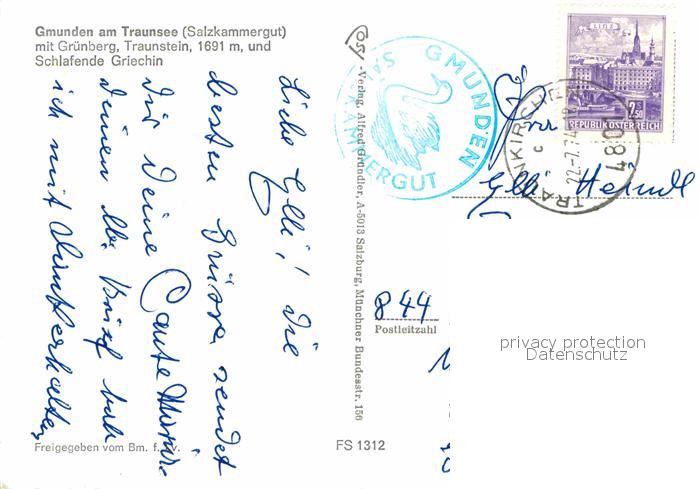 Gmunden am Traunsee (Salzkammergut)
mit Grünberg, Traunstein, 1691 m, und
Schlafende Griechin
Liebe Glli! Die
besten Grüsse sendet
Dir Deine Tante
Deinen lb. Brief hab
ich mit Dank erhalten
Freigegeben vom Bm. f. L. v.
-Verlag Alfred Gründler, A-5013 Salzburg, Münchner Bundesstr. 156
FS 1312
GMUNDEN
SALZKAMMERGUT
LINZ
2.50
REPUBLIK ÖSTERREICH
4801 TRAUNKIRCHEN
22.-7.74
c
Glli
844
Postleitzahl
privacy protection
Datenschutz